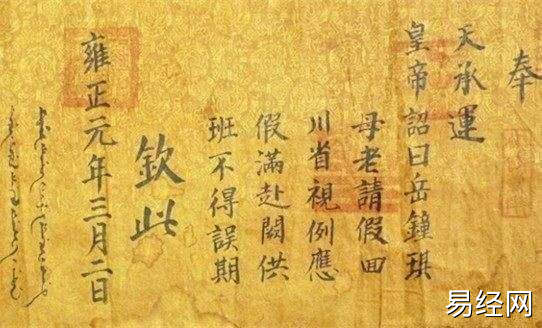 奉
天承運
皇帝詔曰岳鐘琪
母老請假囬
川省視例應
假滿赴闕供
班不得誤期
欽此
雍正元年三月二日
易经网